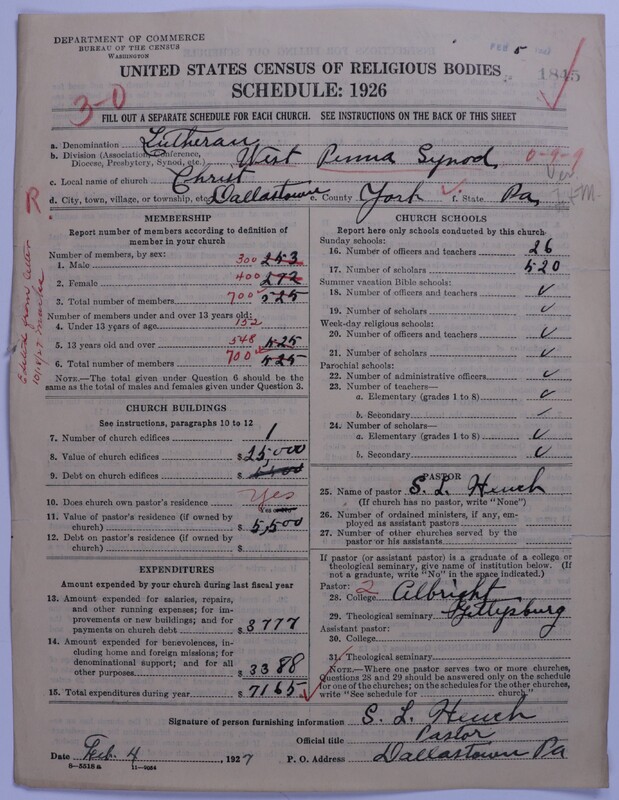 DEPARTMENT OF COMMERCE
BUREAU OF THE CENSUS
WASHINGTON
FEB 5
UNITED STATES CENSUS OF RELIGIOUS BODIES
1845
SCHEDULE: 1926
3-0
FILL OUT A SEPARATE SCHEDULE FOR EACH CHURCH. SEE INSTRUCTIONS ON THE BACK OF THIS SHEET
a. Denomination Lutheran
b. Division (Association, Conference, Diocese, Presbytery, Synod, etc.) West Penna Synod 0-9-9
c. Local name of church Christ Ver
d. City, town, village, or township, etc. Dallastown e. County York f. State Pa.
MEMBERSHIP
Report number of members according to definition of
member in your church
Number of members, by sex:
1. Male 300 253
2. Female 400 272
3. Total number of members 700 525
Number of members under and over 13 years old:
4. Under 13 years of age 152
5. 13 years old and over 548 525
6. Total number of members 700 525
NOTE.—The total given under Question 6 should be
same as the total of males and females given under Question 3.
Edited from letter
CHURCH BUILDINGS
See instructions, paragraphs 10 to 12
7. Number of church edifices 1
8. Value of church edifices $ 25,000
9. Debt on church edifices $
10. Does church own pastor's residence Yes
11. Value of pastor's residence (if owned by
church) $ 5,500
12. Debt on pastor's residence (if owned by
church) $
EXPENDITURES
Amount expended by your church during last fiscal year
13. Amount expended for salaries, repairs,
and other running expenses; for im-
provements or new buildings; and for
payments on church debt $ 3777
14. Amount expended for benevolences, in-
cluding home and foreign missions; for
denominational support; and for all
other purposes $ 3388
15. Total expenditures during year $ 7165
CHURCH SCHOOLS
Report here only schools conducted by this church
Sunday schools:
16. Number of officers and teachers 26
17. Number of scholars 520
Summer vacation Bible schools:
18. Number of officers and teachers ✓
19. Number of scholars ✓
Week-day religious schools:
20. Number of officers and teachers ✓
21. Number of scholars ✓
Parochial schools:
22. Number of administrative officers ✓
23. Number of teachers—
a. Elementary (grades 1 to 8) ✓
b. Secondary
24. Number of scholars—
a. Elementary (grades 1 to 8) ✓
b. Secondary ✓
PASTOR
25. Name of pastor S. L. Hench
(If church has no pastor, write "None")
26. Number of ordained ministers, if any, em-
ployed as assistant pastors
27. Number of other churches served by the
pastor or his assistants
If pastor (or assistant pastor) is a graduate of a college or
theological seminary, give name of institution below. (If
not a graduate, write "No" in the space indicated.)
Pastor: 2
28. College Albright
29. Theological seminary Gettysburg
Assistant pastor:
30. College
31. Theological seminary
NOTE.—Where one pastor serves two or more churches,
Questions 28 and 29 should be answered only on the schedule
for one of the churches; on the schedules for the other churches,
write "See schedule for church."
Signature of person furnishing information S. L. Hench
Official title Pastor
Date Feb. 4, 1927 P. O. Address Dallastown Pa
8—5518 a 11—9054